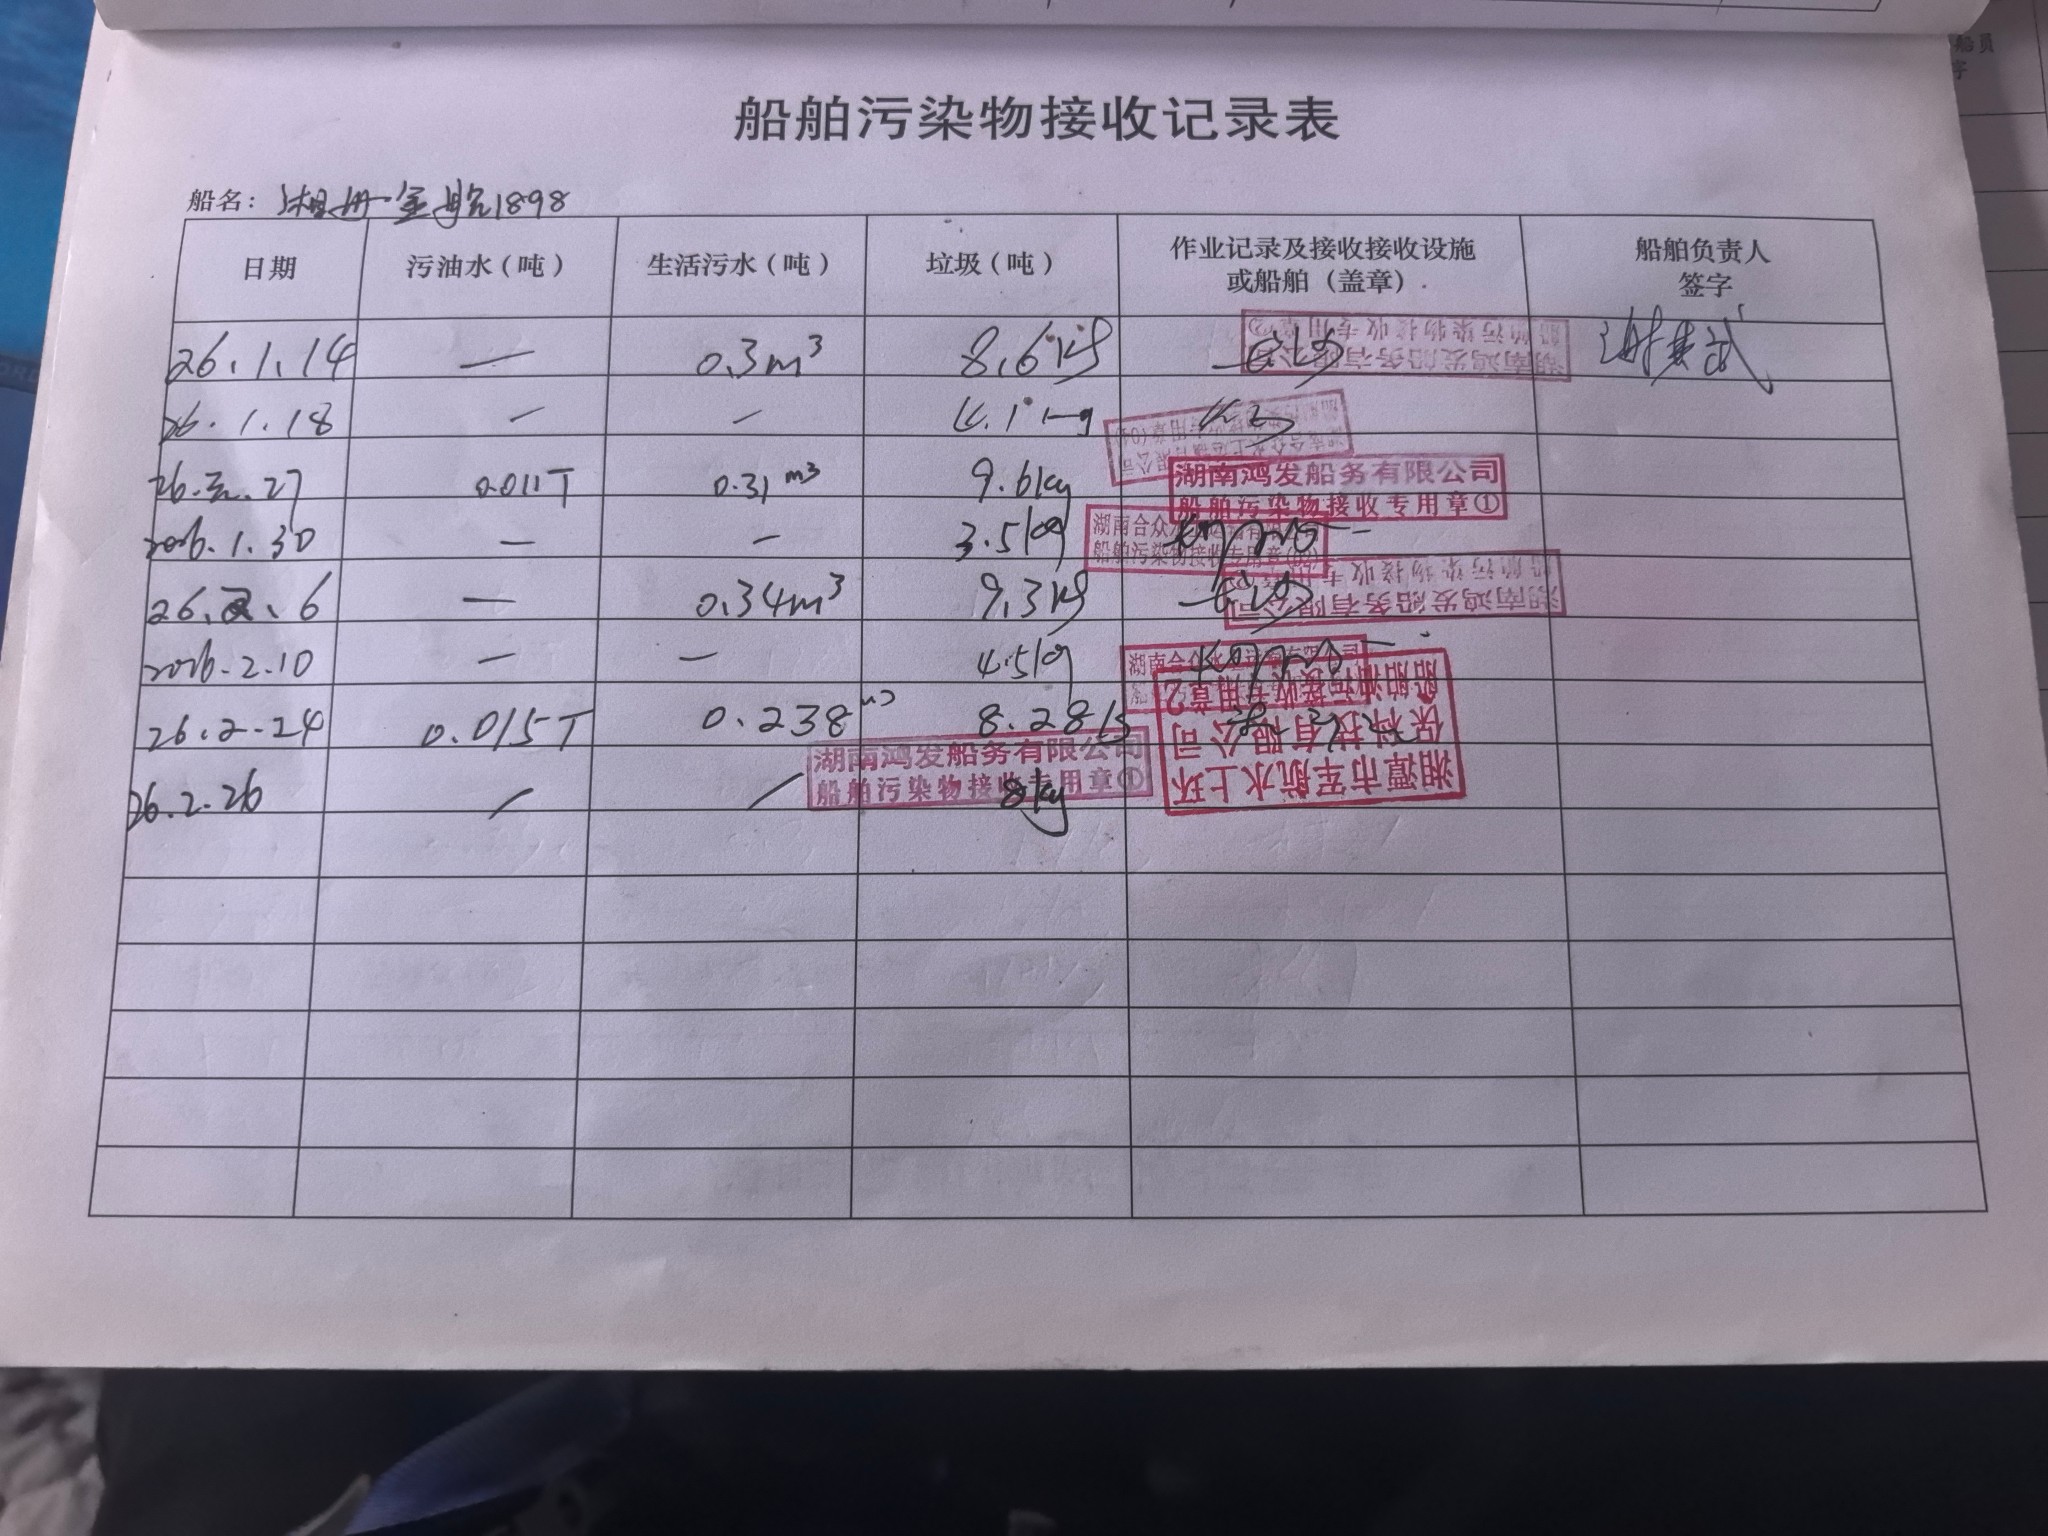 船舶污染物接收记录表
船名：湘 1898
日期 污油水（吨） 生活污水（吨） 垃圾（吨） 作业记录及接收接收设施或船舶（盖章） 船舶负责人签字
26.1.14 — 0.3m³ 8.6kg
湖南鸿发船务有限公司
船舶污染物接收专用章②
26.1.18 — — 4.1kg
26. .27 0.011T 0.31m³ 9.6kg
湖南鸿发船务有限公司
船舶污染物接收专用章①
2026.1.30 — — 3.5kg
湖南合众水上 有限公司
船舶污染物接收专用章
26.2.6 — 0.34m³ 9.3kg
湖南鸿发船务有限公司
船舶污染物接收专用章
2026.2.10 — — 4.5kg
湖南合众水上 有限公司
26.2.24 0.015T 0.238m³ 8.28kg
湘潭市军航水上环
保科技有限公司
船舶油污接收专用章2
26.2.26 / / 8kg
湖南鸿发船务有限公司
船舶污染物接收专用章①
船员
字